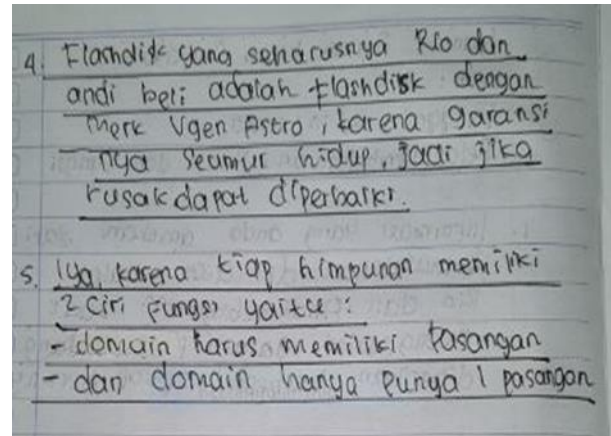 4. Flashdisk yang seharusnya Rio dan
andi beli adalah flashdisk dengan
merk Vgen Astro, karena garansi
nya seumur hidup, jadi jika
rusak dapat diperbaiki.
5. Iya, karena tiap himpunan memiliki
2 ciri fungsi yaitu :
- domain harus memiliki pasangan
- dan domain hanya punya 1 pasangan